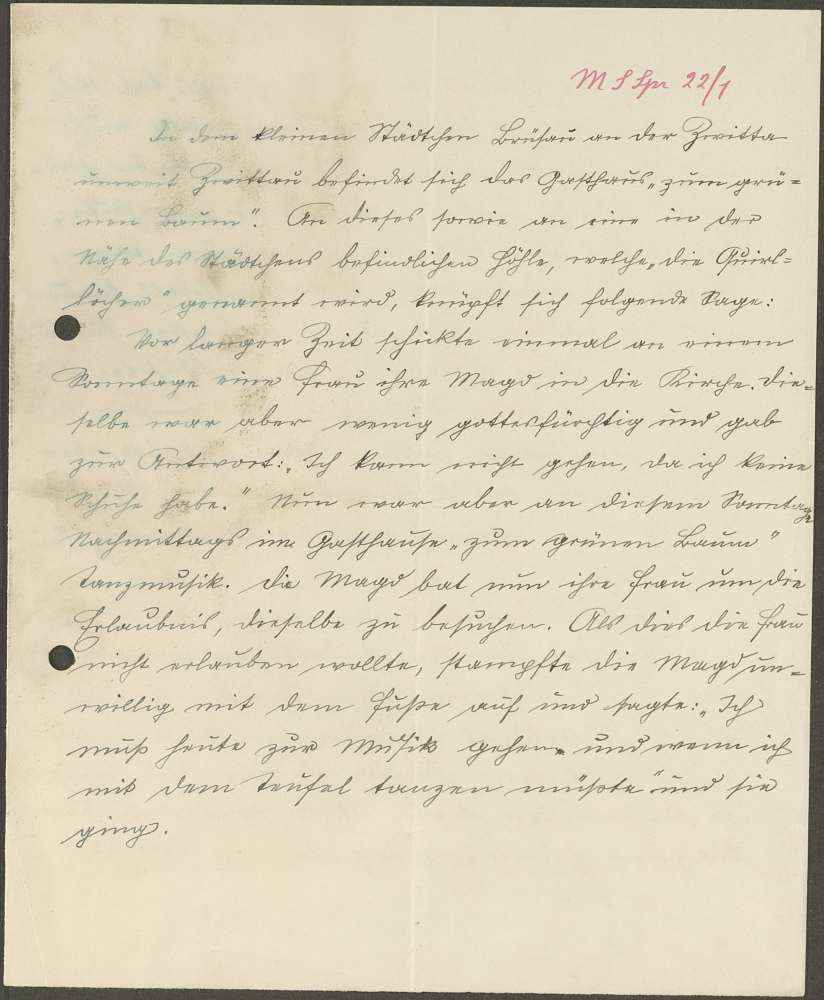 M S Spr 22/1
In dem kleinen Städtchen Brüsau an der Zwitta
unweit Zwittau befindet sich das Gasthaus „zum grü=
nen Baum". An dieses sowie an eine in der
Nähe des Städtchens befindlichen Höhle, welche „die Quirl=
löcher" genannt wird, knüpft sich folgende Sage:
Vor langer Zeit schickte einmal an einem
Sonntage eine Frau ihre Magd in die Kirche. Die=
selbe war aber wenig gottesfürchtig und gab
zur Antwort: „Ich kann nicht gehen, da ich keine
Schuhe habe." Nun war aber an diesem Sonntage
Nachmittags im Gasthause „zum grünen Baum"
Tanzmusik. Die Magd bat nun ihre Frau um die
Erlaubnis, dieselbe zu besuchen. Als dies die Frau
nicht erlauben wollte, stampfte die Magd un=
willig mit dem Fuße auf und sagte: „Ich
muß heute zur Musik gehen und wenn ich
mit dem Teufel tanzen müßte" und sie
ging.